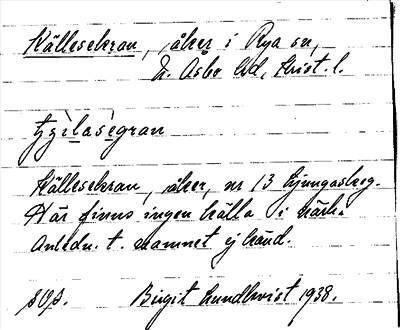 Källesekran, åker i Rya sn,
N. Åsbo hd, Krist. l.
Källesekran, åker, nr 13 Ljungaskog.
Här finns ingen källa i närh.
Anledn. t. namnet ej känd.
Birgit Lundkvist 1938.